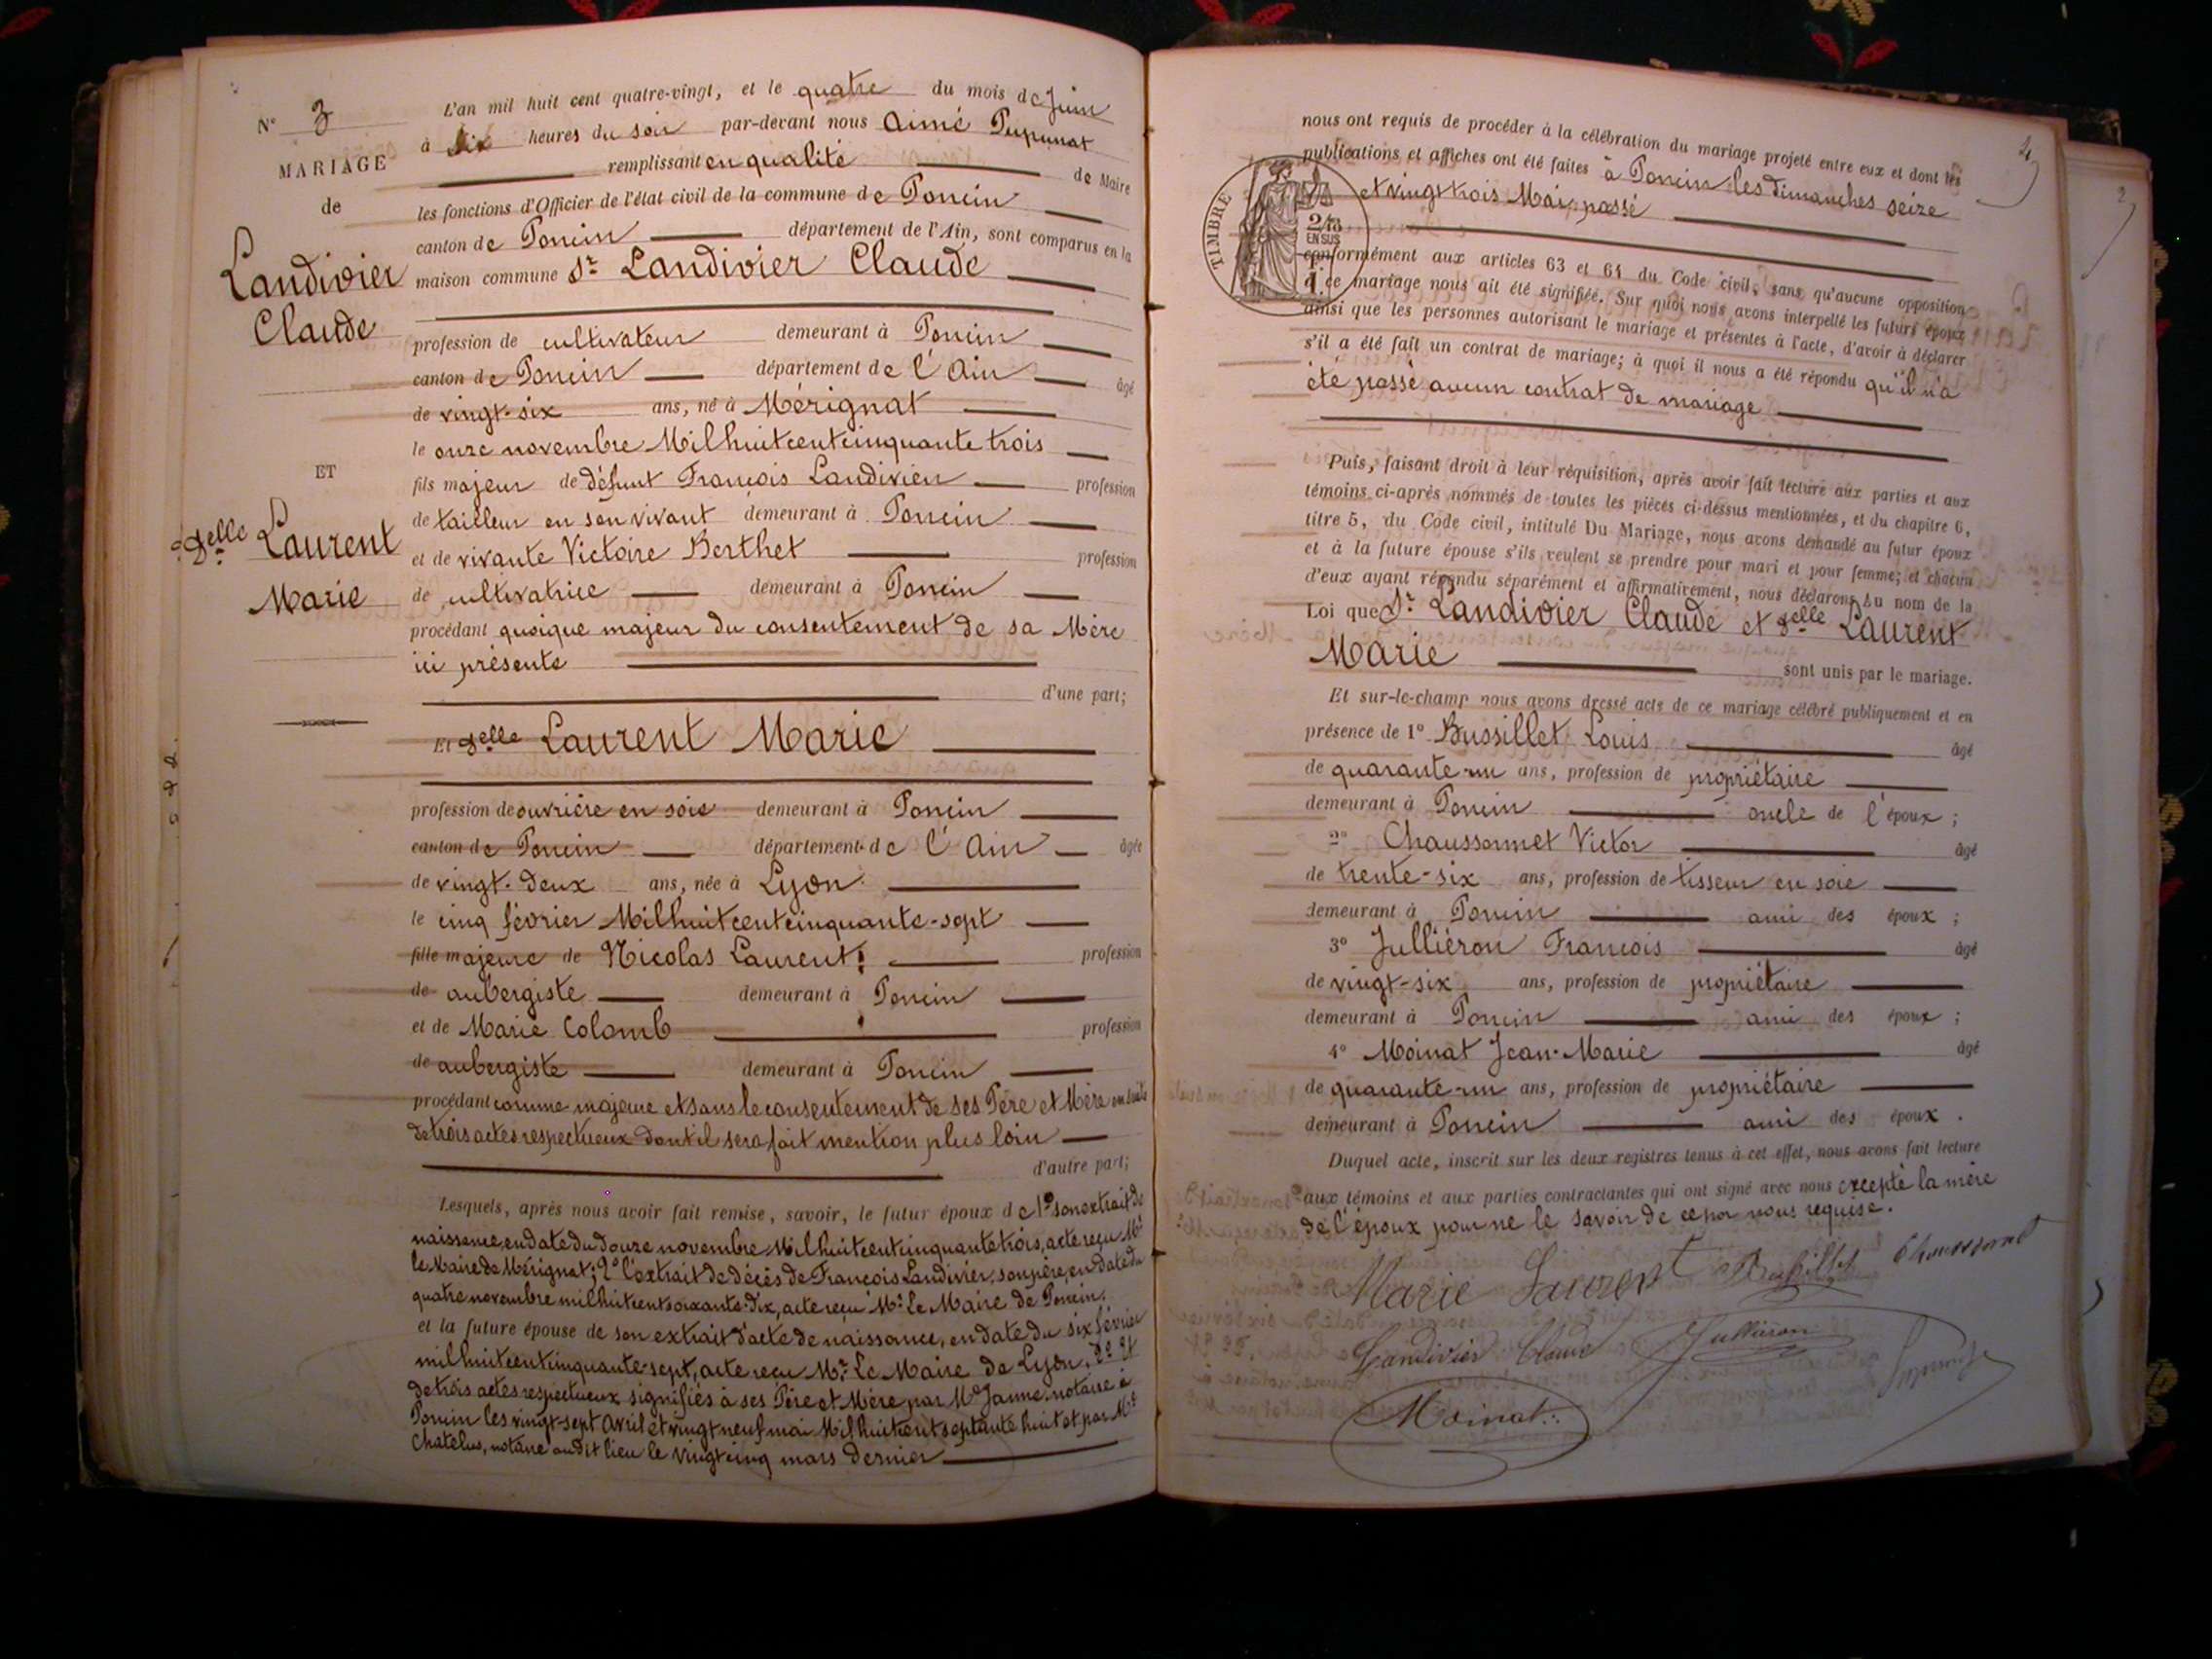 N° 3
MARIAGE
de
Landivier
Claude
ET
Delle Laurent
Marie
L'an mil huit cent quatre-vingt, et le quatre du mois de Juin
à six heures du soir par-devant nous Aimé Pupunat
remplissant en qualité de Maire
les fonctions d'Officier de l'état civil de la commune de Poncin
canton de Poncin département de l'Ain, sont comparus en la
maison commune Sr Landivier Claude
profession de cultivateur demeurant à Poncin
canton de Poncin département de l'Ain âgé
de vingt-six ans, né à Mérignat
le onze novembre Mil huit cent cinquante trois
fils majeur de défunt François Landivier profession
de tailleur en son vivant demeurant à Poncin
et de vivante Victoire Berthet profession
de cultivatrice demeurant à Poncin
procédant quoique majeur du consentement de sa Mère
ici présente
d'une part;
Et Delle Laurent Marie
profession de ouvrière en soie demeurant à Poncin
canton de Poncin département de l'Ain âgée
de vingt-deux ans, née à Lyon
le cinq février Mil huit cent cinquante-sept
fille majeure de Nicolas Laurent profession
de aubergiste demeurant à Poncin
et de Marie Colomb profession
de aubergiste demeurant à Poncin
procédant comme majeure et sans le consentement de ses Père et Mère ensuite
de trois actes respectueux dont il sera fait mention plus loin
d'autre part;
Lesquels, après nous avoir fait remise, savoir, le futur époux de 1° son extrait de
naissance, en date du douze novembre Mil huit cent cinquante trois, acte reçu Mr
le Maire de Mérignat; 2° l'extrait de décès de François Landivier, son père, en date du
quatre novembre mil huit cent soixante-dix, acte reçu Mr Le Maire de Poncin.
et la future épouse de son extrait d'acte de naissance, en date du six février
mil huit cent cinquante-sept, acte reçu Mr Le Maire de Lyon, 2° Et
de trois actes respectueux signifiés à ses Père et Mère par Me Janne, notaire à
Poncin les vingt-sept avril et vingt neuf mai Mil huit cent septante huit et par Me
Chatelus, notaire audit lieu le vingt cinq mars dernier
nous ont requis de procéder à la célébration du mariage projeté entre eux et dont les
publications et affiches ont été faites à Poncin les dimanches seize
et vingt trois Mai passé
TIMBRE
2/10
EN SUS
conformément aux articles 63 et 64 du Code civil, sans qu'aucune opposition
à ce mariage nous ait été signifiée. Sur quoi nous avons interpellé les futurs époux
ainsi que les personnes autorisant le mariage et présentes à l'acte, d'avoir à déclarer
s'il a été fait un contrat de mariage; à quoi il nous a été répondu qu'il n'a
été passé aucun contrat de mariage
Puis, faisant droit à leur réquisition, après avoir fait lecture aux parties et aux
témoins ci-après nommés de toutes les pièces ci-dessus mentionnées, et du chapitre 6,
titre 5, du Code civil, intitulé Du Mariage, nous avons demandé au futur époux
et à la future épouse s'ils veulent se prendre pour mari et pour femme; et chacun
d'eux ayant répondu séparément et affirmativement, nous déclarons au nom de la
Loi que Sr Landivier Claude et Delle Laurent
Marie sont unis par le mariage.
Et sur-le-champ nous avons dressé acte de ce mariage célébré publiquement et en
présence de 1° Bussillet Louis âgé
de quarante-un ans, profession de propriétaire
demeurant à Poncin oncle de l'époux;
2° Chaussonnet Victor âgé
de trente-six ans, profession de tisseur en soie
demeurant à Poncin ami des époux;
3° Julliéron François âgé
de vingt-six ans, profession de propriétaire
demeurant à Poncin ami des époux;
4° Moinat Jean-Marie âgé
de quarante-un ans, profession de propriétaire
demeurant à Poncin ami des époux.
Duquel acte, inscrit sur les deux registres tenus à cet effet, nous avons fait lecture
aux témoins et aux parties contractantes qui ont signé avec nous excepté la mère
de l'époux pour ne le savoir de ce par nous requise.
Marie Laurent Bussillet Chaussonnet
Landivier Claude Julliéron
Moinat